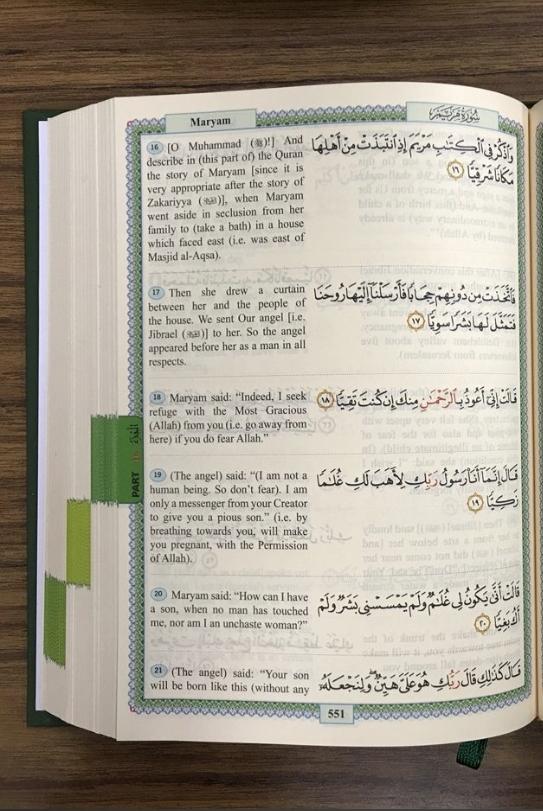 Maryam
سُورَةُ مَرْيَم
16 [O Muhammad (ﷺ)!] And
describe in (this part of) the Quran
the story of Maryam [since it is
very appropriate after the story of
Zakariyya (ﷺ)], when Maryam
went aside in seclusion from her
family to (take a bath) in a house
which faced east (i.e. was east of
Masjid al-Aqsa).
وَٱذْكُرْ فِى ٱلْكِتَٰبِ مَرْيَمَ إِذِ ٱنتَبَذَتْ مِنْ أَهْلِهَا
مَكَانًا شَرْقِيًّا ١٦
17 Then she drew a curtain
between her and the people of
the house. We sent Our angel [i.e.
Jibrael (ﷺ)] to her. So the angel
appeared before her as a man in all
respects.
فَٱتَّخَذَتْ مِن دُونِهِمْ حِجَابًا فَأَرْسَلْنَآ إِلَيْهَا رُوحَنَا
فَتَمَثَّلَ لَهَا بَشَرًا سَوِيًّا ١٧
18 Maryam said: “Indeed, I seek
refuge with the Most Gracious
(Allah) from you (i.e. go away from
here) if you do fear Allah.”
قَالَتْ إِنِّىٓ أَعُوذُ بِٱلرَّحْمَٰنِ مِنكَ إِن كُنتَ تَقِيًّا ١٨
19 (The angel) said: “(I am not a
human being. So don’t fear). I am
only a messenger from your Creator
to give you a pious son.” (i.e. by
breathing towards you, will make
you pregnant, with the Permission
of Allah).
قَالَ إِنَّمَآ أَنَا۠ رَسُولُ رَبِّكِ لِأَهَبَ لَكِ غُلَٰمًا
زَكِيًّا ١٩
20 Maryam said: “How can I have
a son, when no man has touched
me, nor am I an unchaste woman?”
قَالَتْ أَنَّىٰ يَكُونُ لِى غُلَٰمٌ وَلَمْ يَمْسَسْنِى بَشَرٌ وَلَمْ
أَكُ بَغِيًّا ٢٠
21 (The angel) said: “Your son
will be born like this (without any
قَالَ كَذَٰلِكِ قَالَ رَبُّكِ هُوَ عَلَىَّ هَيِّنٌ وَلِنَجْعَلَهُۥٓ
PART 16
551